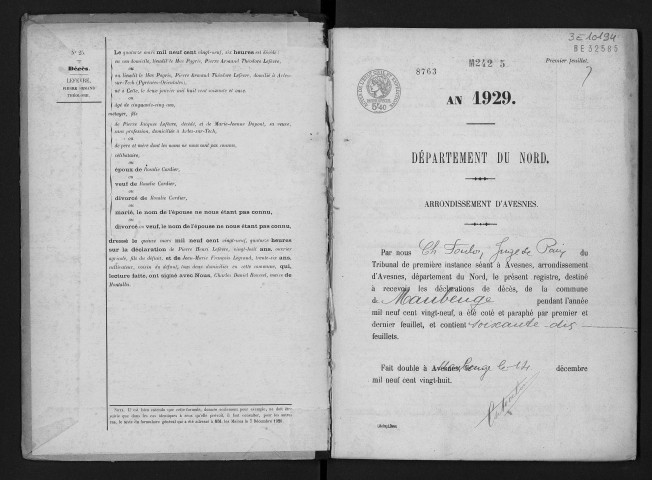 N° 25.
Décès.
LEFEVRE,
PIERRE ARMAND
THÉODORE.
Le quatorze mars mil neuf cent vingt-neuf, six heures est décédé :
en son domicile, lieudit le Mas Pagris, Pierre Armand Théodore Lefevre,
ou
au lieudit le Mas Pagris, Pierre Armand Théodore Lefevre, domicilié à Arles-
sur-Tech (Pyrénées-Orientales),
né à Cette, le deux janvier mil huit cent soixante et onze,
ou
âgé de cinquante-cinq ans,
métayer, fils
de Pierre Jacques Lefevre, décédé, et de Marie-Jeanne Dupont, sa veuve,
sans profession, domiciliée à Arles-sur-Tech,
ou
de père et mère dont les noms ne nous sont pas connus,
célibataire,
ou
époux de Rosalie Cordier,
ou
veuf de Rosalie Cordier,
ou
divorcé de Rosalie Cordier,
ou
marié, le nom de l'épouse ne nous étant pas connu,
ou
divorcé ou veuf, le nom de l'épouse ne nous étant pas connu,
dressé le quinze mars mil neuf cent vingt-neuf, quatorze heures
sur la déclaration de Pierre Henri Lefevre, vingt-huit ans, ouvrier
agricole, fils du défunt, et de Jean-Marie François Legrand, trente-six ans,
cultivateur, cousin du défunt, tous deux domiciliés en cette commune, qui,
lecture faite, ont signé avec Nous, Charles Daniel Roussel, maire de
Montalba.
NOTA. Il va faire entendre que cette formule, donnée seulement pour exemple, ne doit ser-
vir que dans les cas identiques à ceux qu'elle prévoit. Il faut consulter, pour les autres
cas, le texte du formulaire général qui a été adressé à MM. les Maires le 7 Décembre
3 E 10194
8E52585
8763
M242 5
Premier feuillet.
5f40
AN 1929.
DÉPARTEMENT DU NORD.
ARRONDISSEMENT D'AVESNES.
Par nous Juge de Paix du
Tribunal de première instance séant à Avesnes, arrondissement
d'Avesnes, département du Nord, le présent registre, destiné
à recevoir les déclarations de décès, de la commune
de Maubeuge pendant l'année
mil neuf cent vingt-neuf, a été coté et paraphé par premier et
dernier feuillet, et contient soixante-dix
feuillets.
Fait double à Avesnes, Maubeuge le 14 décembre
mil neuf cent vingt-huit.